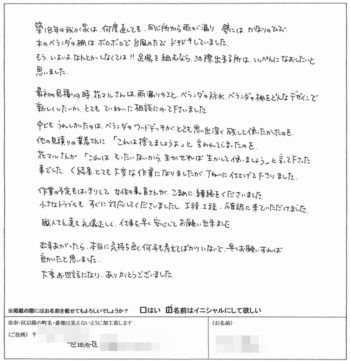 築18年の我が家は、何度直しても、同じ所から雨のが漏り、壁にはかなりのひび。
木のベランダの柵はボロボロで台風のたび ドキドキしていました。
もう、いよいよなんとかしなくては!! 足場を組むなら、この際出来る所は、いっぺんになおしたいと
思いました。
最初の見積りの時、花マルさんは、雨漏りのこと、ベランダの防水、ベランダの柵をどんなデザインで
新しくしたいか、とても ていねいに相談にのって下さいました。
中でも うれしかったのは、ベランダのウッドデッキが とても思い出深く 残して頂いたかったのを、
他の見積りの業者さんに 「これは捨てましょうよ」と言われてしまったのを、
花マルさんが 「これは もったいないから 生かせれば 生かして使いましょう」と言って下さった
事でした。(結果、とても大変な作業になりましたが)きれいに仕上げて下さいました。
作業の予定もはっきりして 女性の職員さんが、こまめに連絡をくださいました
小さなトラブルも すぐに対応してくださいましたし 工程、工程、確認に来ていただけました。
職人さん達も礼儀正しく、仕事も早く安心してお願い出来ました
出来あがったら、本当に気持ち良く何年も考えてばかりいないで、早くお願いすれば
良かったと思いました。
大変お世話になり、ありがとうございました。
※掲載の際にはお名前を載せてもよろしいでしょうか? □はい ☑名前はイニシャルにして欲しい
※市・区以降の町名・番地は見えないように加工致します
(ご住所) 〒
世田谷区
(お名前)